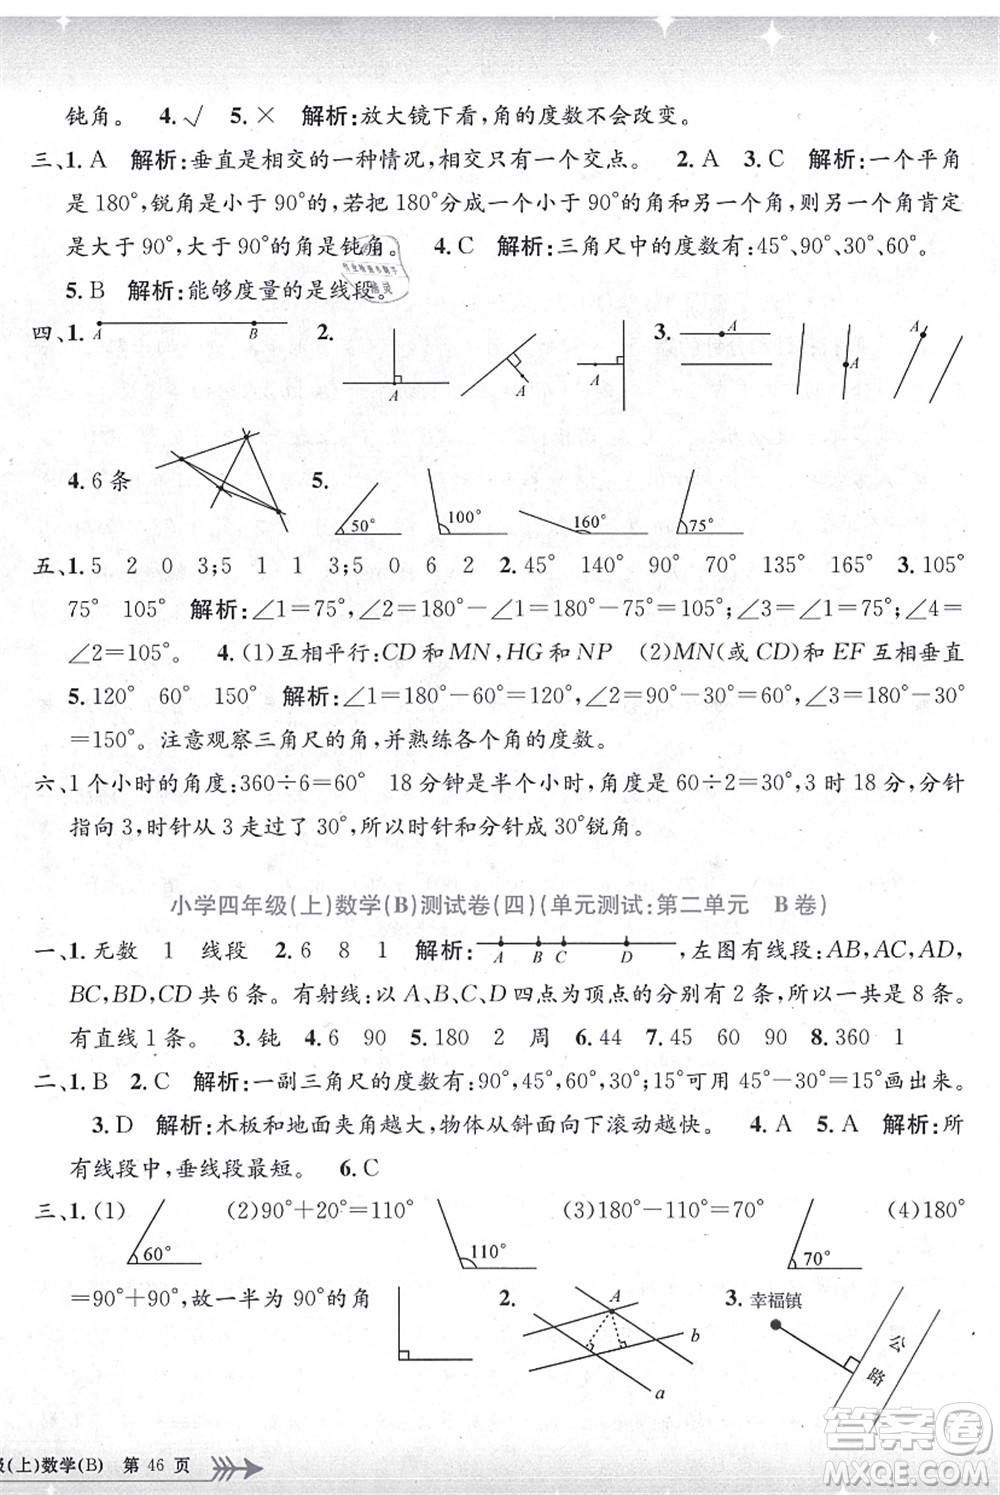 钝角。 4.√ 5.× 解析:放大镜下看,角的度数不会改变。
三、1. A 解析:垂直是相交的一种情况,相交只有一个交点。 2. A 3. C 解析:一个平角
是 180°,锐角是小于 90°的,若把 180°分成一个小于 90°的角和另一个角,则另一个角肯定
是大于 90°,大于 90°的角是钝角。 4. C 解析:三角尺中的度数有:45°、90°、30°、60°。
5. B 解析:能够度量的是线段。
四、1. A B 2. A A A 3. A A A
4. 6 条 5. 50° 100° 160° 75°
五、1. 5 2 0 3;5 1 1 3;5 0 6 2 2. 45° 140° 90° 70° 135° 3. 105°
75° 105° 解析:∠1=75°,∠2=180°-∠1=180°-75°=105°;∠3=∠1=75°,∠4=
∠2=105°。 4. (1)互相平行:CD 和 MN,HG 和 NP (2)MN(或 CD)和 EF 互相垂直
5. 120° 60° 150° 解析:∠1=180°-60°=120°,∠2=90°-30°=60°,∠3=180°-30°
=150°。注意观察三角尺的角,并熟练各个角的度数。
六、1 个小时的角度:360÷6=60° 18 分钟是半个小时,角度是 60÷2=30°,3 时 18 分,分针
指向 3,时针从 3 走过了 30°,所以时针和分针成 30°锐角。
小学四年级(上)数学(B)测试卷(四)(单元测试:第二单元 B 卷)
一、1. 无数 1 线段 2. 6 8 1 解析: A B C D ,左图有线段:AB,AC,AD,
BC,BD,CD 共 6 条。有射线:以 A、B、C、D 四点为顶点的分别有 2 条,所以一共是 8 条。
有直线 1 条。 3. 钝 4. 6 90 5. 180 2 周 6. 44 7. 45 90 90 8. 360 1
二、1. B 2. C 解析:一副三角尺的度数有:90°,45°,60°,30°;15°可用 45°-30°=15°画出来。
3. D 解析:木板和地面夹角越大,物体从斜面向下滚动越快。 4. A 5. A 解析:所
有线段中,垂线段最短。 6. C
三、1. (1) 60° (2)90°+20°=110° 110° (3)180°-110°=70° 70° (4)180°
=90°+90°,故一半为 90°的角 2. A b a 3. 幸福镇 公路
级(上)数学(B) 第 46 页
答案卷
MXQE.COM